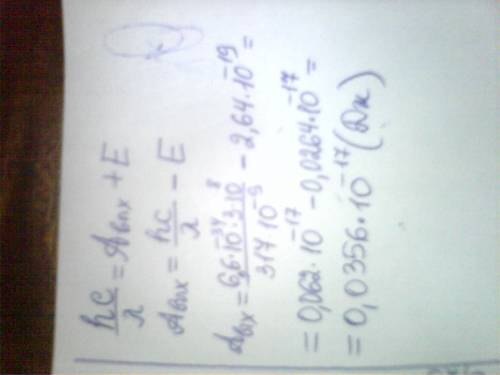 hc/λ = Aвых + E
Aвых = hc/λ - E
Aвых = 6,6·10⁻³⁴·3·10⁸/317·10⁻⁹ - 2,64·10⁻¹⁹ =
= 0,062·10⁻¹⁷ - 0,0264·10⁻¹⁷ =
= 0,0356·10⁻¹⁷ (Дж)